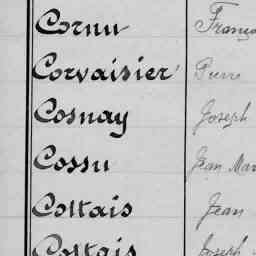 Cornu Franço
Corvaisier Pierre
Cosnay Joseph
Cossu Jean Mar
Costais Jean
Costais Joseph